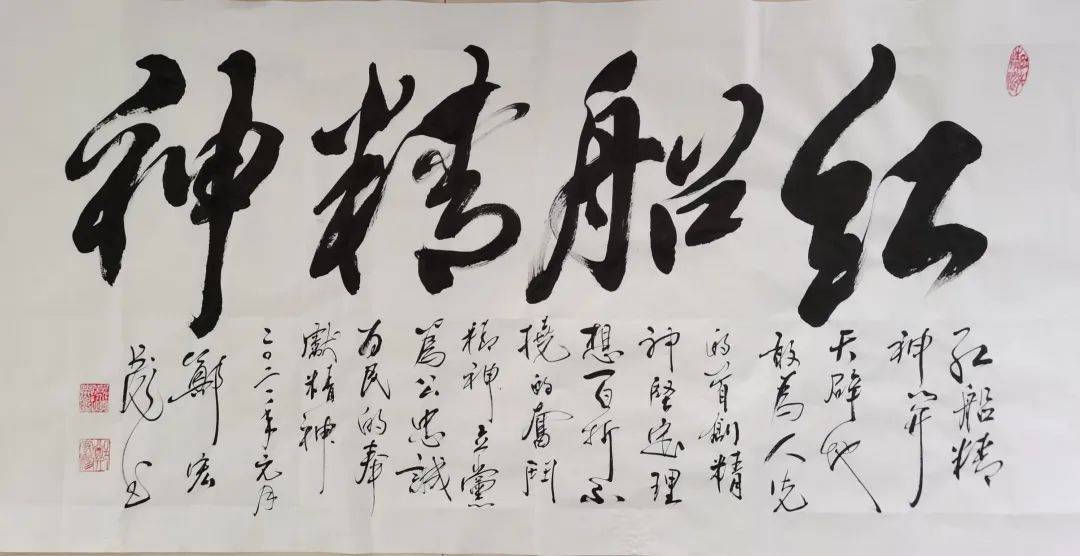 红船精神
红船精
神开
天辟地
敢為人先
的首創精
神堅定理
想百折不
撓的奮鬥
精神立黨
為公忠誠
为民的奉
獻精神
二〇二一年元月
鄭宏
书